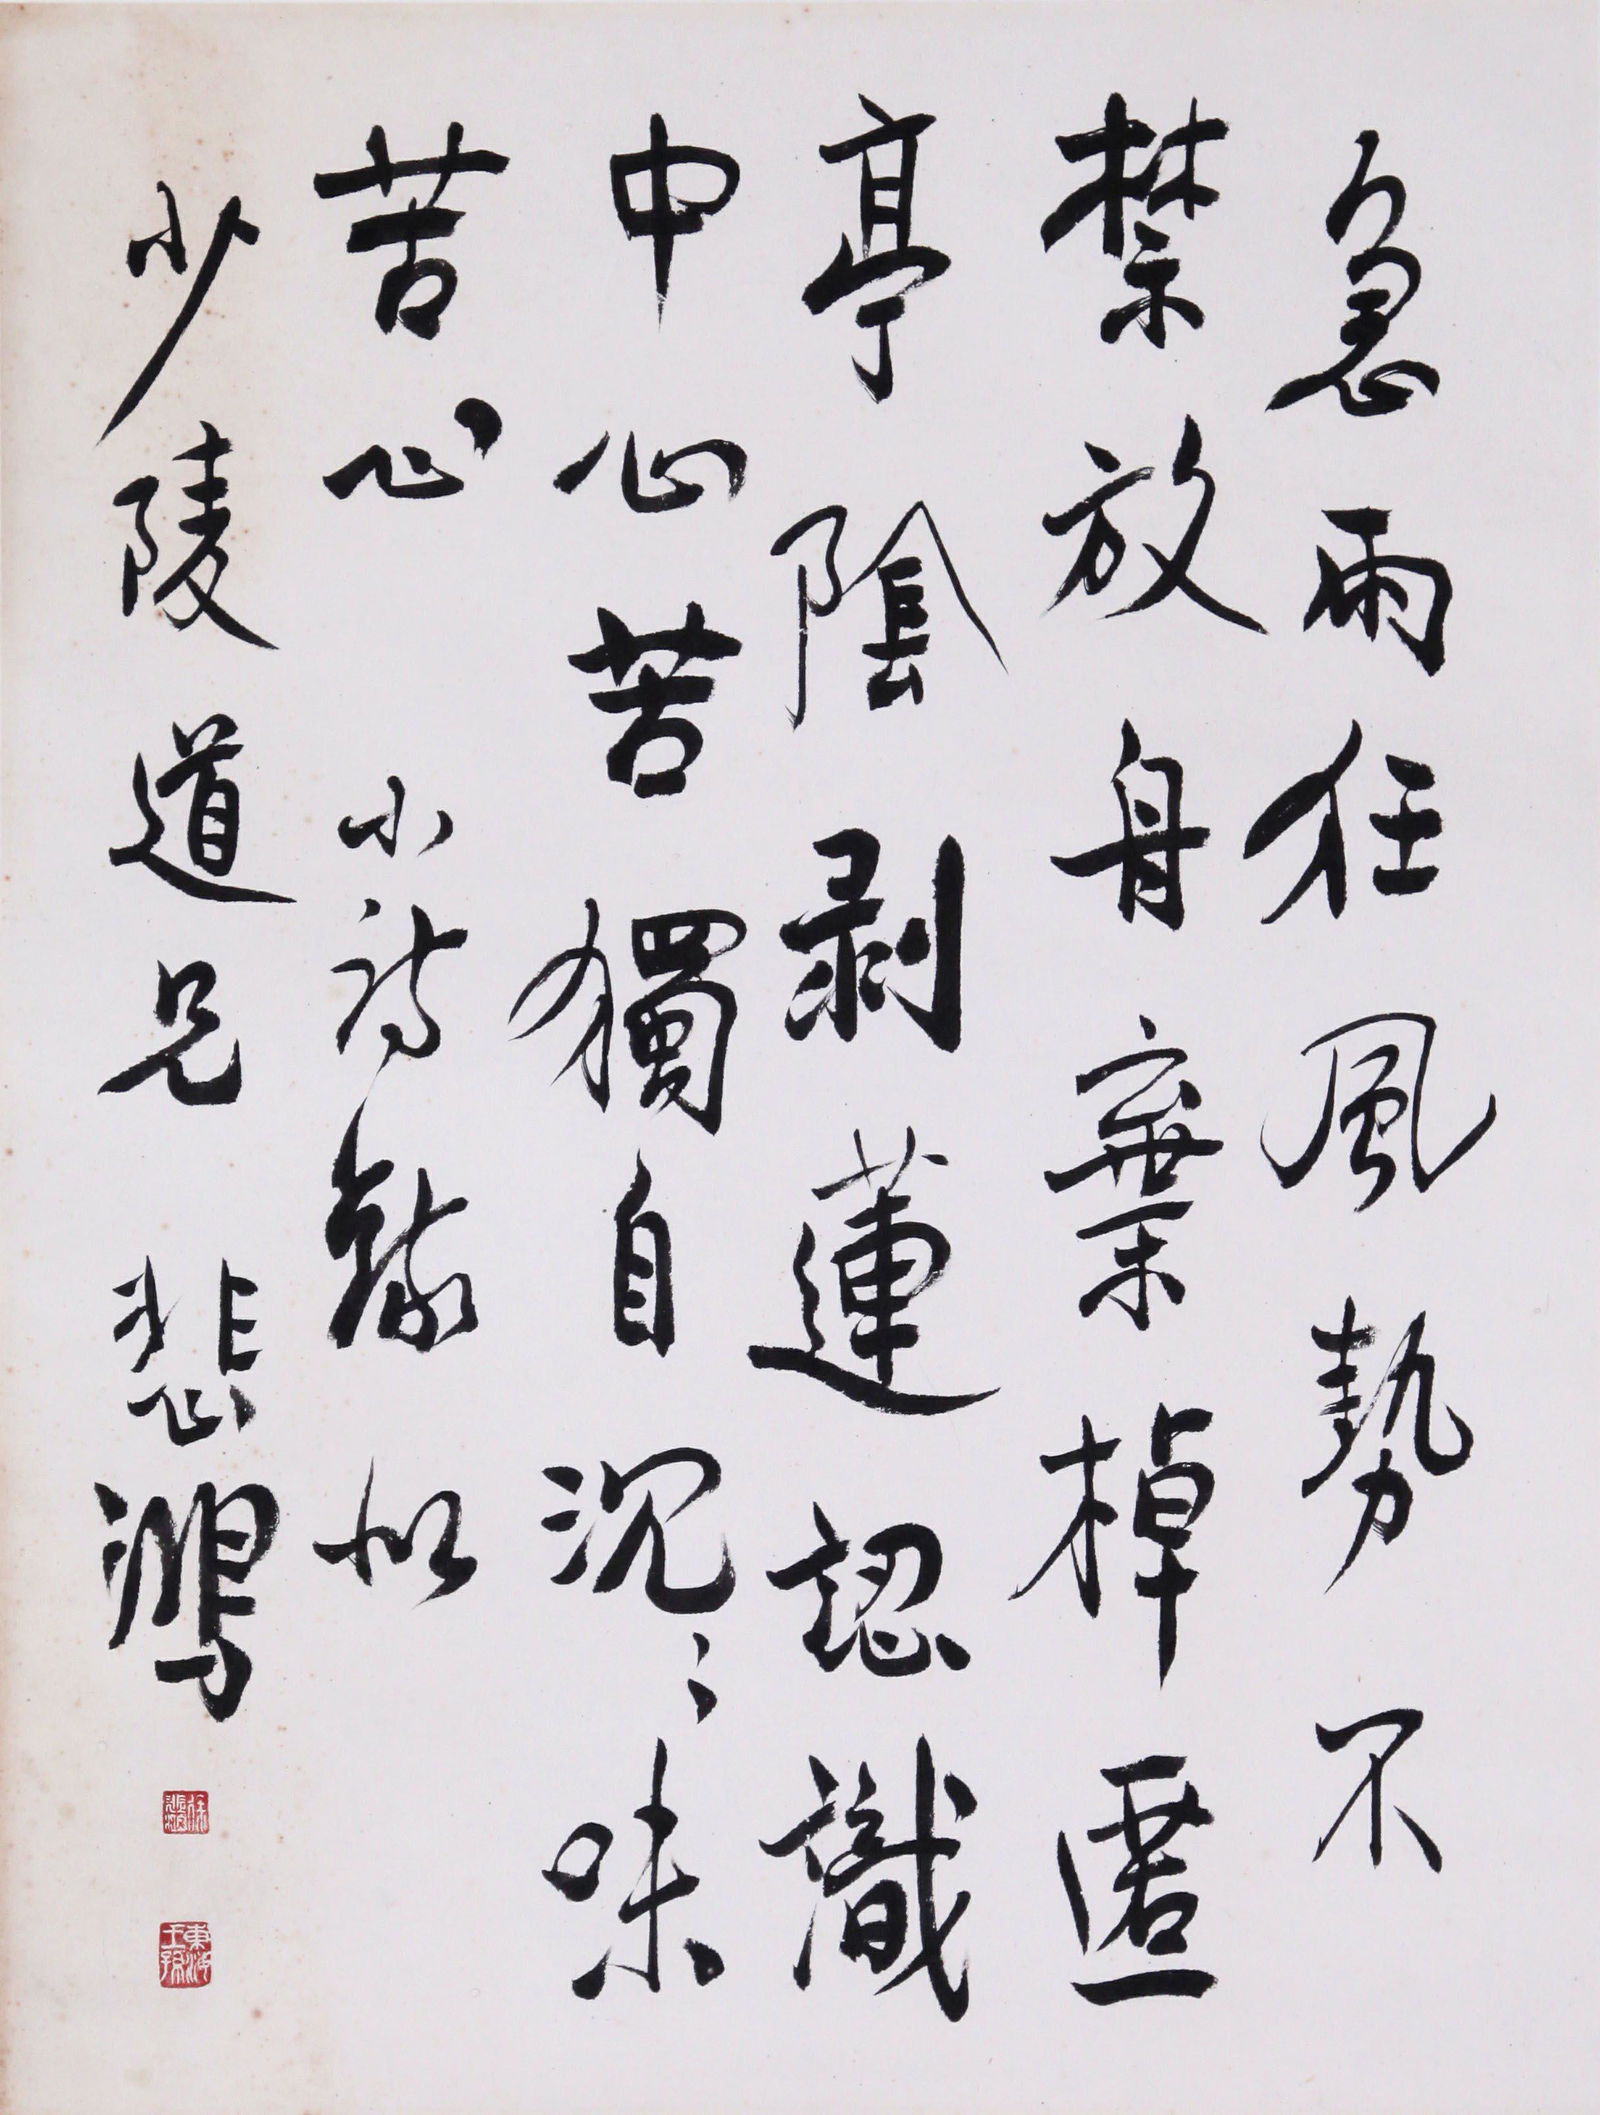 急雨狂風勢不
禁放舟棄棹匿
亭陰剥蓮認識
中心苦獨自沉〻味
苦心 小詩録似
少陵道兄 悲鴻
徐悲鴻
東海王孫